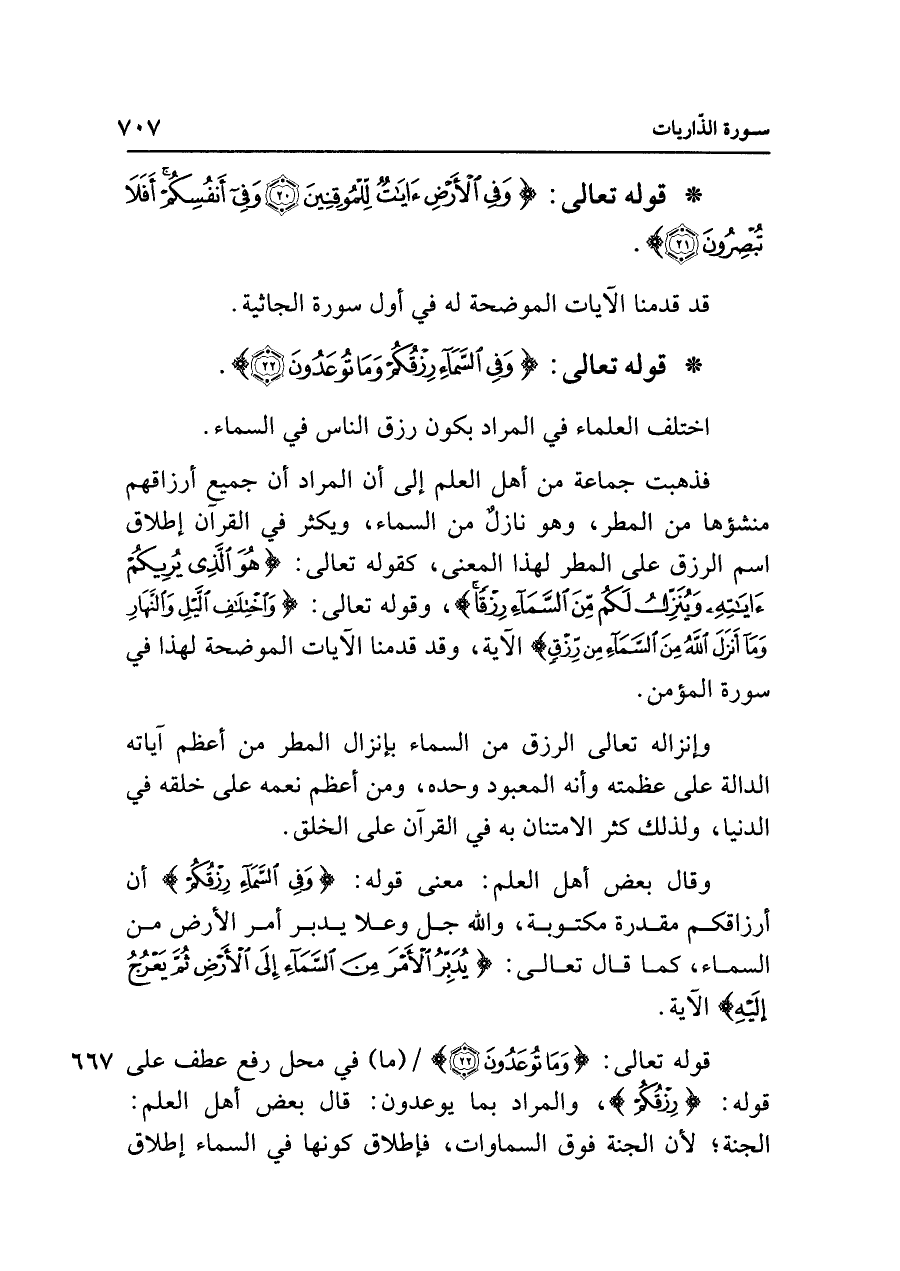 سورة الذّاريات ٧٠٧
* قوله تعالى: ﴿ وَفِي ٱلۡأَرۡضِ ءَايَٰتٞ لِّلۡمُوقِنِينَ ۝٢٠ وَفِيٓ أَنفُسِكُمۡۚ أَفَلَا
تُبۡصِرُونَ ۝٢١ ﴾ .
قد قدمنا الآيات الموضحة له في أول سورة الجاثية .
* قوله تعالى: ﴿ وَفِي ٱلسَّمَآءِ رِزۡقُكُمۡ وَمَا تُوعَدُونَ ۝٢٢ ﴾ .
اختلف العلماء في المراد بكون رزق الناس في السماء .
فذهبت جماعة من أهل العلم إلى أن المراد أن جميع أرزاقهم
منشؤها من المطر، وهو نازلٌ من السماء، ويكثر في القرآن إطلاق
اسم الرزق على المطر لهذا المعنى، كقوله تعالى: ﴿ هُوَ ٱلَّذِي يُرِيكُمۡ
ءَايَٰتِهِۦ وَيُنَزِّلُ لَكُم مِّنَ ٱلسَّمَآءِ رِزۡقٗاۚ ﴾، وقوله تعالى: ﴿ وَٱخۡتِلَٰفِ ٱلَّيۡلِ وَٱلنَّهَارِ
وَمَآ أَنزَلَ ٱللَّهُ مِنَ ٱلسَّمَآءِ مِن رِّزۡقٖ ﴾ الآية، وقد قدمنا الآيات الموضحة لهذا في
سورة المؤمن .
وإنزاله تعالى الرزق من السماء بإنزال المطر من أعظم آياته
الدالة على عظمته وأنه المعبود وحده، ومن أعظم نعمه على خلقه في
الدنيا، ولذلك كثر الامتنان به في القرآن على الخلق .
وقال بعض أهل العلم: معنى قوله: ﴿ وَفِي ٱلسَّمَآءِ رِزۡقُكُمۡ ﴾ أن
أرزاقكم مقدرة مكتوبة، والله جل وعلا يدبر أمر الأرض من
السماء، كما قال تعالى: ﴿ يُدَبِّرُ ٱلۡأَمۡرَ مِنَ ٱلسَّمَآءِ إِلَى ٱلۡأَرۡضِ ثُمَّ يَعۡرُجُ
إِلَيۡهِ ﴾ الآية .
قوله تعالى: ﴿ وَمَا تُوعَدُونَ ۝٢٢ ﴾ / (ما) في محل رفع عطف على ٦٦٧
قوله: ﴿ رِزۡقُكُمۡ ﴾، والمراد بما يوعدون: قال بعض أهل العلم:
الجنة؛ لأن الجنة فوق السماوات، فإطلاق كونها في السماء إطلاق